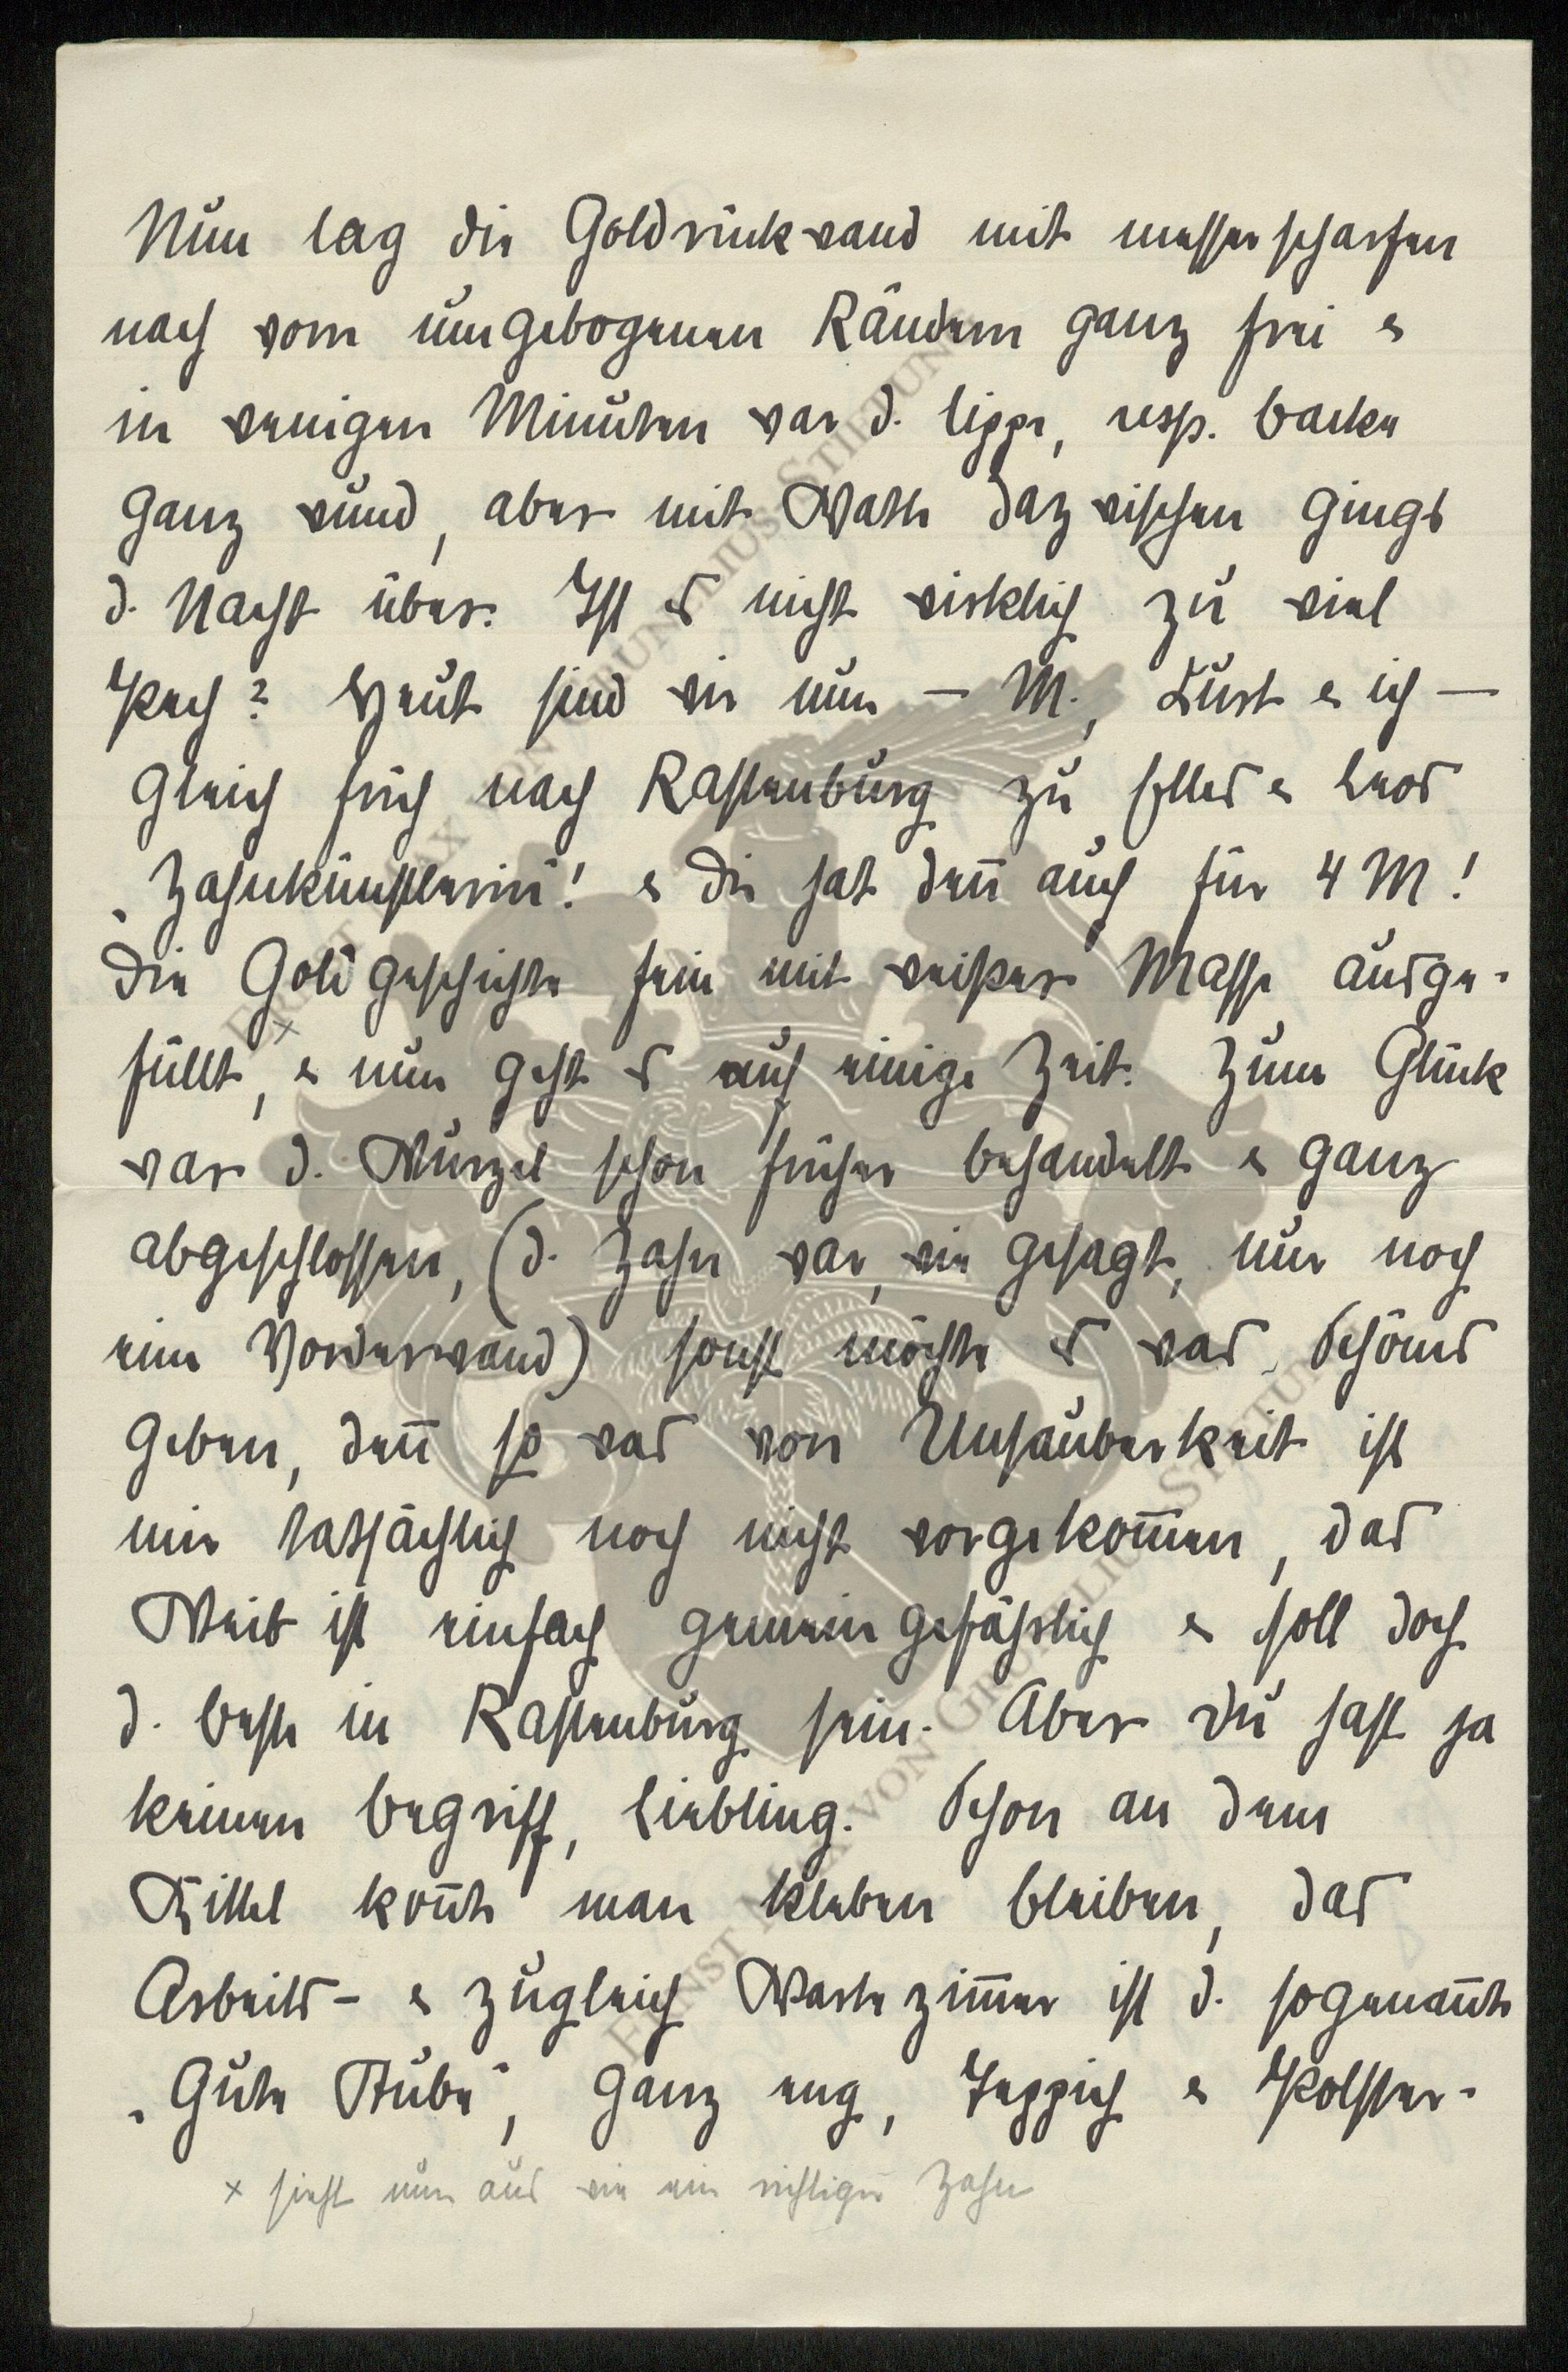 Nun lag die Goldrückwand mit messerscharfen
nach vorn umgebogenen Rändern ganz frei &
in wenigen Minuten war d. Lippe, resp. Backe
ganz wund, aber mit Watte dazwischen gings
d. Nacht über. Ist es nicht wirklich zu viel
Pech? Heut sind wir nun — M., Kurt & ich —
gleich früh nach Rastenburg zu
„Zahnkünstlerin“! & die hat denn̄ auch für 4 M!
die Goldgeschichte fein mit weißer Masse ausge-
füllt,× & nun geht es auf einige Zeit. Zum Glück
war d. Wurzel schon früher behandelt & ganz
abgeschlossen, (d. Zahn war, wie gesagt, nur noch
eine Vorderwand) sonst möchte es was Schönes
geben, den̄ so was von Unsauberkeit ist
mir tatsächlich noch nicht vorgekom̄en, das
Weib ist einfach gemeingefährlich & soll doch
d. beste in Rastenburg sein. Aber Du hast ja
keinen Begriff, Liebling. Schon an dem
Kittel kon̄te man kleben bleiben, das
Arbeits- & zugleich Wartezim̄er ist d. sogenan̄te
„Gute Stube“, ganz eng, Teppich & Polster-
× sieht nun aus wie ein richtiger Zahn
ERNST MAX VON GRUNELIUS-STIFTUNG
ERNST MAX VON GRUNELIUS-STIFTUNG